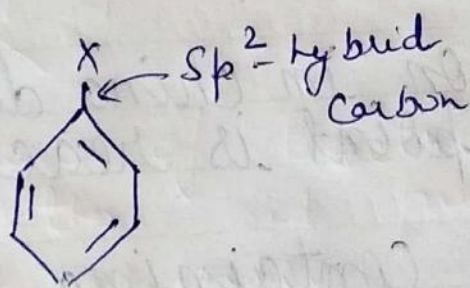 X
Sp²- hybrid
Carbon